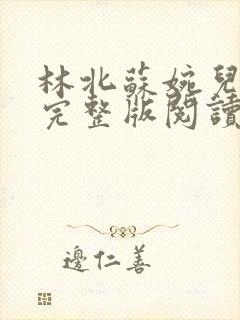 林北蘇婉兒
完整版閱讀
邊仁善